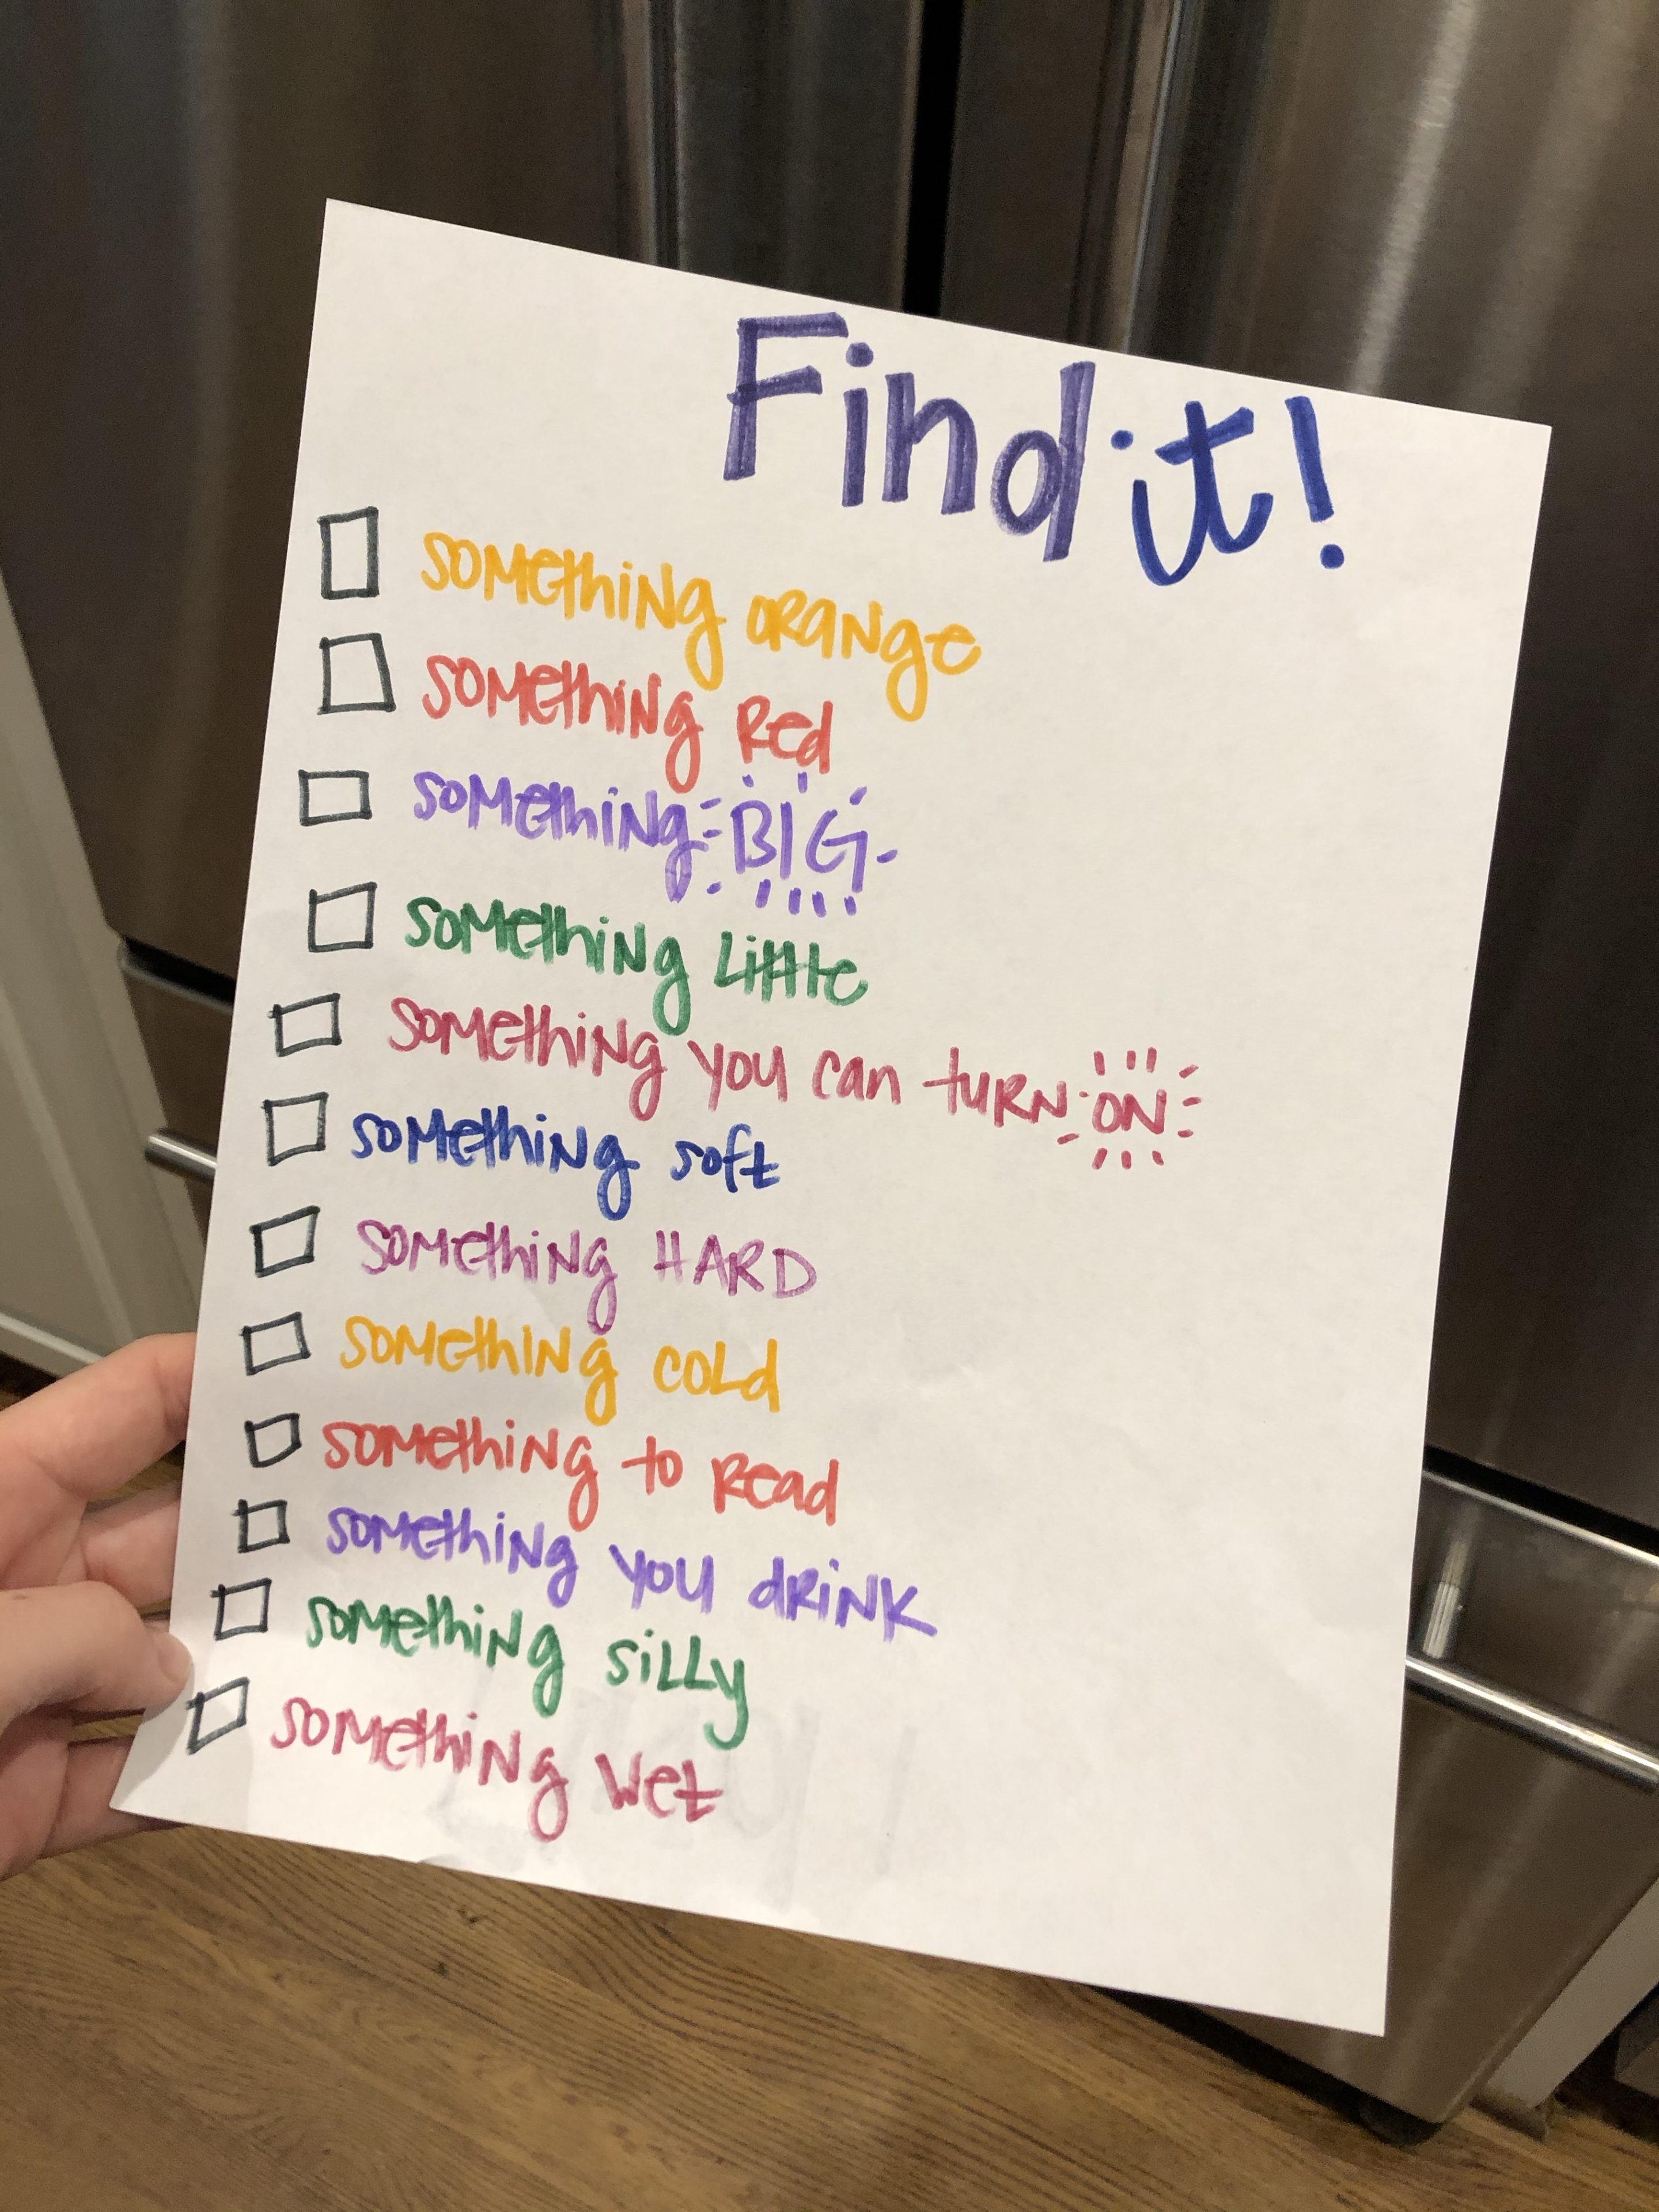 Find it!
something orange
something Red
something BIG
something Little
something you can turn ON
something soft
something HARD
something cold
something to Read
something you drink
something silly
something wet